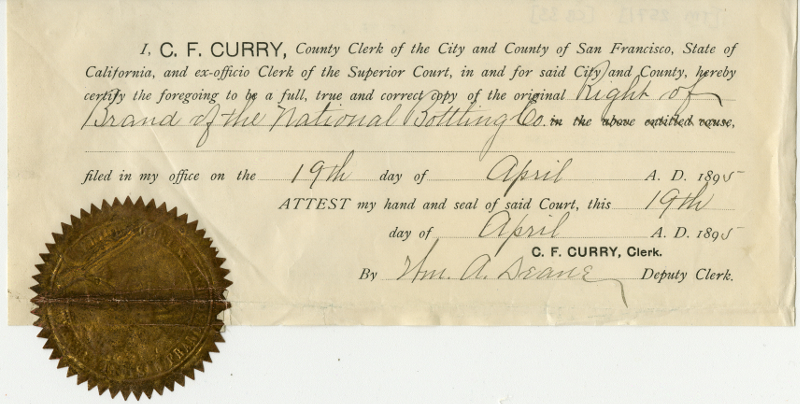 I, C. F. CURRY, County Clerk of the City and County of San Francisco, State of
California, and ex-officio Clerk of the Superior Court, in and for said City and County, hereby
certify the foregoing to be a full, true and correct copy of the original Right of
Brand of the National Bottling Co. in the above entitled cause,
filed in my office on the 19th day of April A. D. 1895
ATTEST my hand and seal of said Court, this 19th
day of April A. D. 1895
C. F. CURRY, Clerk.
By Wm. A. Deane Deputy Clerk.